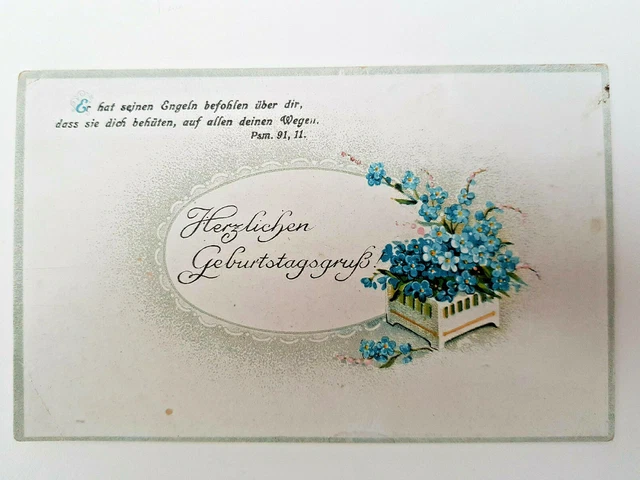 Er hat seinen Engeln befohlen über dir,
dass sie dich behüten, auf allen deinen Wegen.
Psm. 91, 11.
Herzlichen
Geburtstagsgruß!